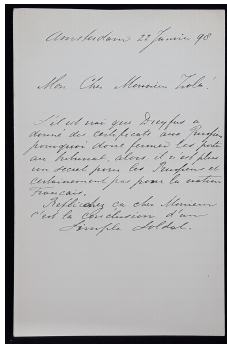 Amsterdam 22 Janvier 98
Mon Cher Monsieur Zola!
S'il est vrai que Dreyfus a
donné des certificats aux
pourquoi donc fermer les
au tribunal, alors il n'est plus
un secret pour les et
certainement pas pour la nation
Francais.
ça cher Monsieur
c'est la conclusion d'un
Simple Soldat.